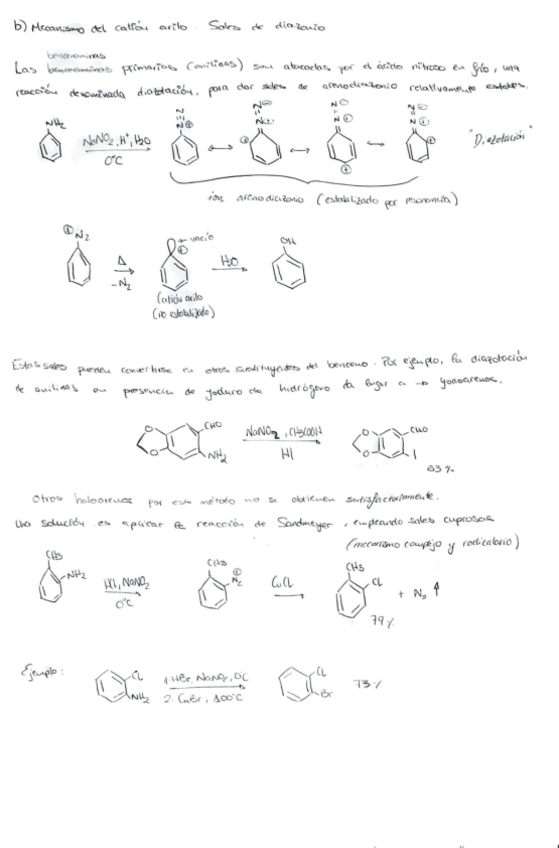 b) Mecanismo del catión arilo. Sales de diazonio
bencenaminas
Las bencenaminas primarias (anilinas) son atacadas por el ácido nitroso en frío, una
reacción denominada diazotación, para dar sales de arenodiazonio relativamente estables.
NH2
NaNO2, H+, H2O
0°C
N
N⊕
N⊖
N:
⊕
N⊖
N⊕
⊕
N⊖
N⊕
⊕
"Diazotación"
ión arenodiazonio (estabilizado por resonancia)
⊕N2
Δ
-N2
vacío
⊕
H2O
OH
Catión arilo
(no estabilizado)
Estas sales pueden convertirse en otros sustituyentes del benceno. Por ejemplo, la diazotación
de anilinas en presencia de yoduro de hidrógeno da lugar a → yodoarenos.
O
O
CHO
NH2
NaNO2, CH3COOH
HI
O
O
CHO
I
Otros haloarenos por este método no se obtienen satisfactoriamente.
Una solución es aplicar la reacción de Sandmeyer, empleando sales cuprosas
(mecanismo complejo y radicalario)
CH3
NH2
HCl, NaNO2
0°C
CH3
N2⊕
CuCl
CH3
Cl
+ N2 ↑
79%
Ejemplo:
Cl
NH2
1. HBr, NaNO2, 0°C
2. CuBr, 100°C
Cl
Br
73%